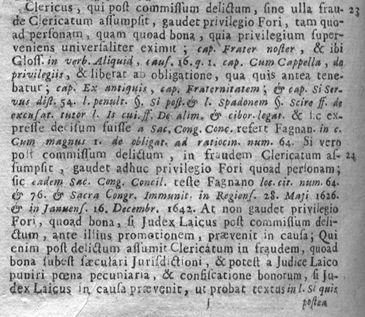 Clericus, qui post commissum delictum, sine ulla frau- 23
de Clericatum assumpsit, gaudet privilegio Fori, tam quo-
ad personam, quam quoad bona, quia privilegium super-
veniens universaliter eximit; cap. Frater noster, & ibi
Gloss. in verb. Aliquid, caus. 16. q. 1. cap. Cum Cappella, de
privilegiis, & liberat ab obligatione, qua quis antea tene-
batur; cap. Ex antiquis, cap. Fraternitatem; & cap. Si Ser-
vus dist. 54. l. penult. §. Si post. & l. Spadonem §. Scire ff. de
excusat. tutor l. It cui ff. De alim. & cibor. legat. & sic ex-
presse decisum fuisse a Sac. Cong. Conc. refert Fagnan. in c.
Cum magnus 1. de obligat. ad ratiocin. num. 64. Si vero
post commissum delictum, in fraudem Clericatum as- 24
sumpsit, gaudet adhuc privilegio Fori quoad personam;
sic eadem Sac. Cong. Concil. teste Fagnano loc. cit. num. 64.
& 76. & Sacra Congr. Immunit. in Regiens. 28. Maji 1626.
& in Januens. 16. Decembr. 1642. At non gaudet privilegio
Fori, quoad bona, si Judex Laicus post commissum deli-
ctum, ante illius promotionem, prævenit in causa; Qui
enim post delictum assumit Clericatum in fraudem, quoad
bona subest sæculari Jurisdictioni, & potest a Judice Laico
puniri pœna pecuniaria, & confiscatione bonorum, si Ju-
dex Laicus in causa prævenit, ut probat textus in l. Si quis
postea